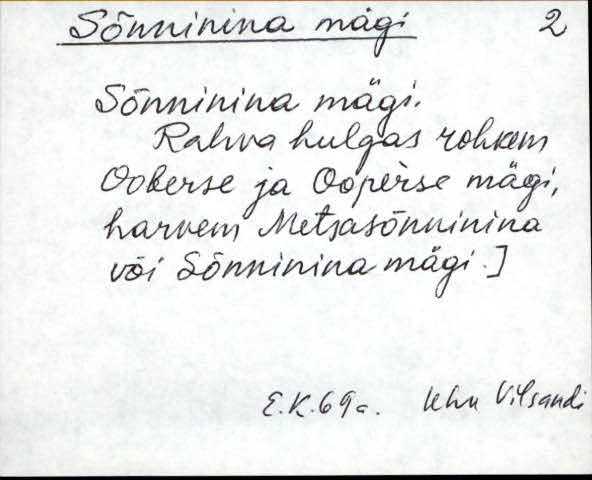 Sõnninina mägi 2
Sõnninina mägi.
Rahva hulgas rohkem
Ooberse ja Ooperse mägi,
harvem Metsasõnninina
või Sõnninina mägi.]
E.K.69a. Uhu Vilsandi